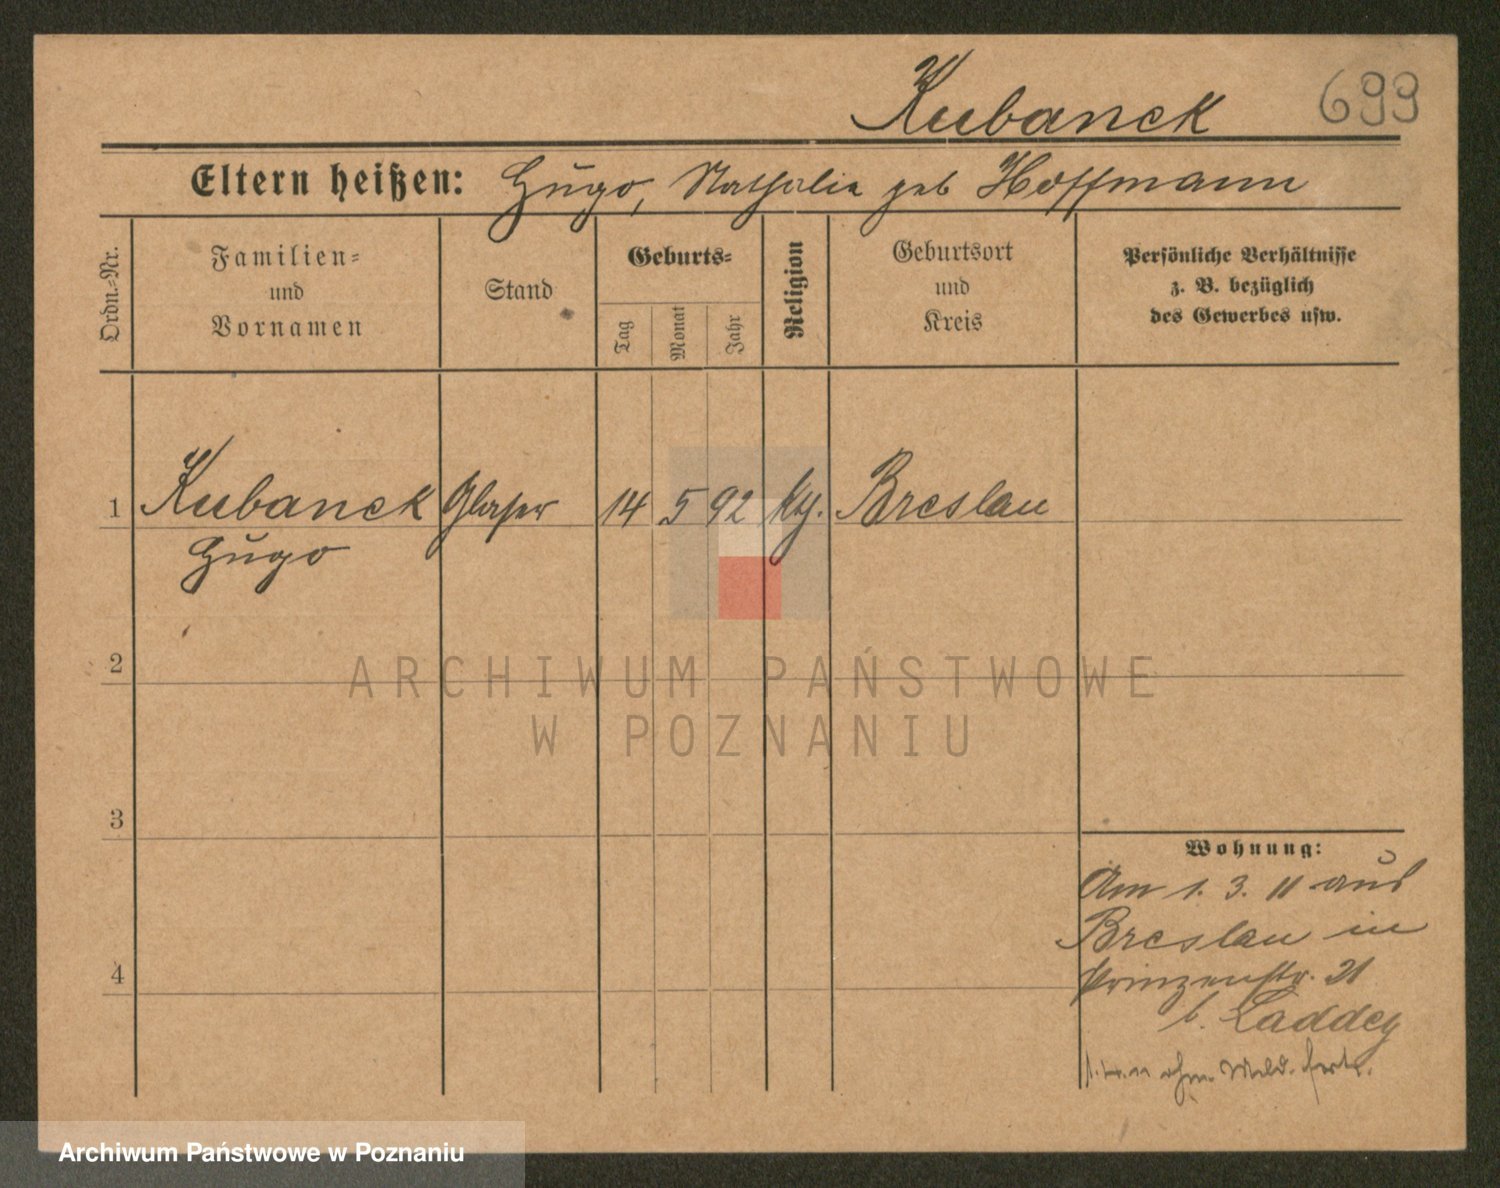 Kubanck 699
Eltern heißen: Hugo, Nathalie geb Hoffmann
Ordn.-Nr.
Familien-
und
Vornamen
Stand
Geburts-
Tag
Monat
Jahr
Religion
Geburtsort
und
Kreis
Persönliche Verhältnisse
z. B. bezüglich
des Gewerbes usw.
1 Kubanck Glaser 14 5 92 Breslau
Hugo
2
3
4
Wohnung:
Am 1. 3. 11 aus
Breslau in
Prinzenstr. 21
b. Laddey
ohne Meld. fort.
ARCHIWUM PAŃSTWOWE
W POZNANIU
Archiwum Państwowe w Poznaniu